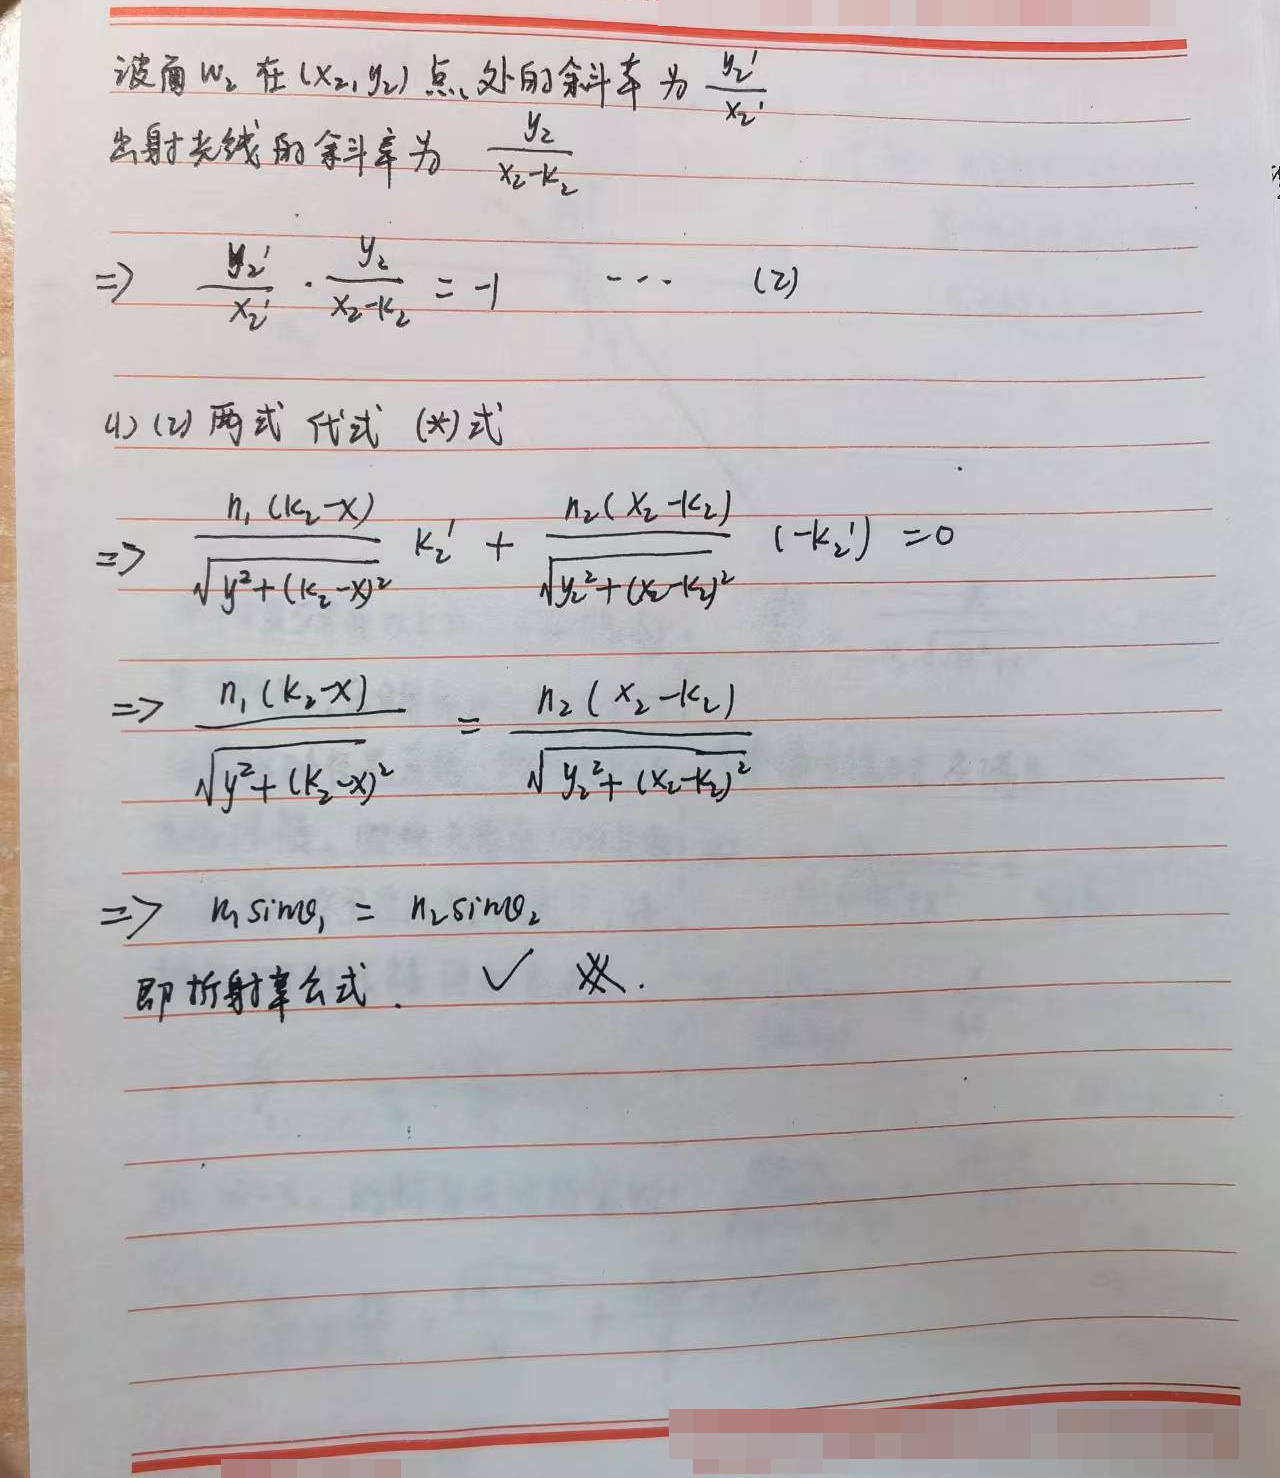 波面 W₂ 在 (x₂, y₂) 点处的斜率为 y₂'/x₂'
出射光线的斜率为 y₂/(x₂-k₂)
=> y₂'/x₂' · y₂/(x₂-k₂) = -1 ... (2)
(1) (2) 两式代式 (*) 式
=> n₁(k₂-x)/√(y²+(k₂-x)²) k₂' + n₂(x₂-k₂)/√(y₂²+(x₂-k₂)²) (-k₂') = 0
=> n₁(k₂-x)/√(y²+(k₂-x)²) = n₂(x₂-k₂)/√(y₂²+(x₂-k₂)²)
=> n₁sinθ₁ = n₂sinθ₂
即折射率公式. ✓ ※.